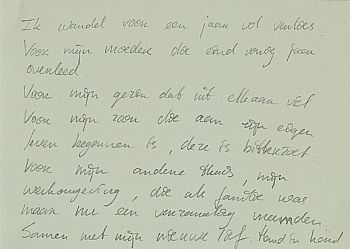 Ik wandel voor een jaar vol verlies.
Voor mijn moeder die eind vorig jaar
overleed.
Voor mijn gezin dat uit elkaar viel
Voor mijn zoon die aan zijn eigen
leven begonnen is, deze is bitterzoet
Voor mijn andere thuis, mijn
werkomgeving, die als familie was
maar nu een verzameling
Samen met mijn nieuwe lief. Hand in hand